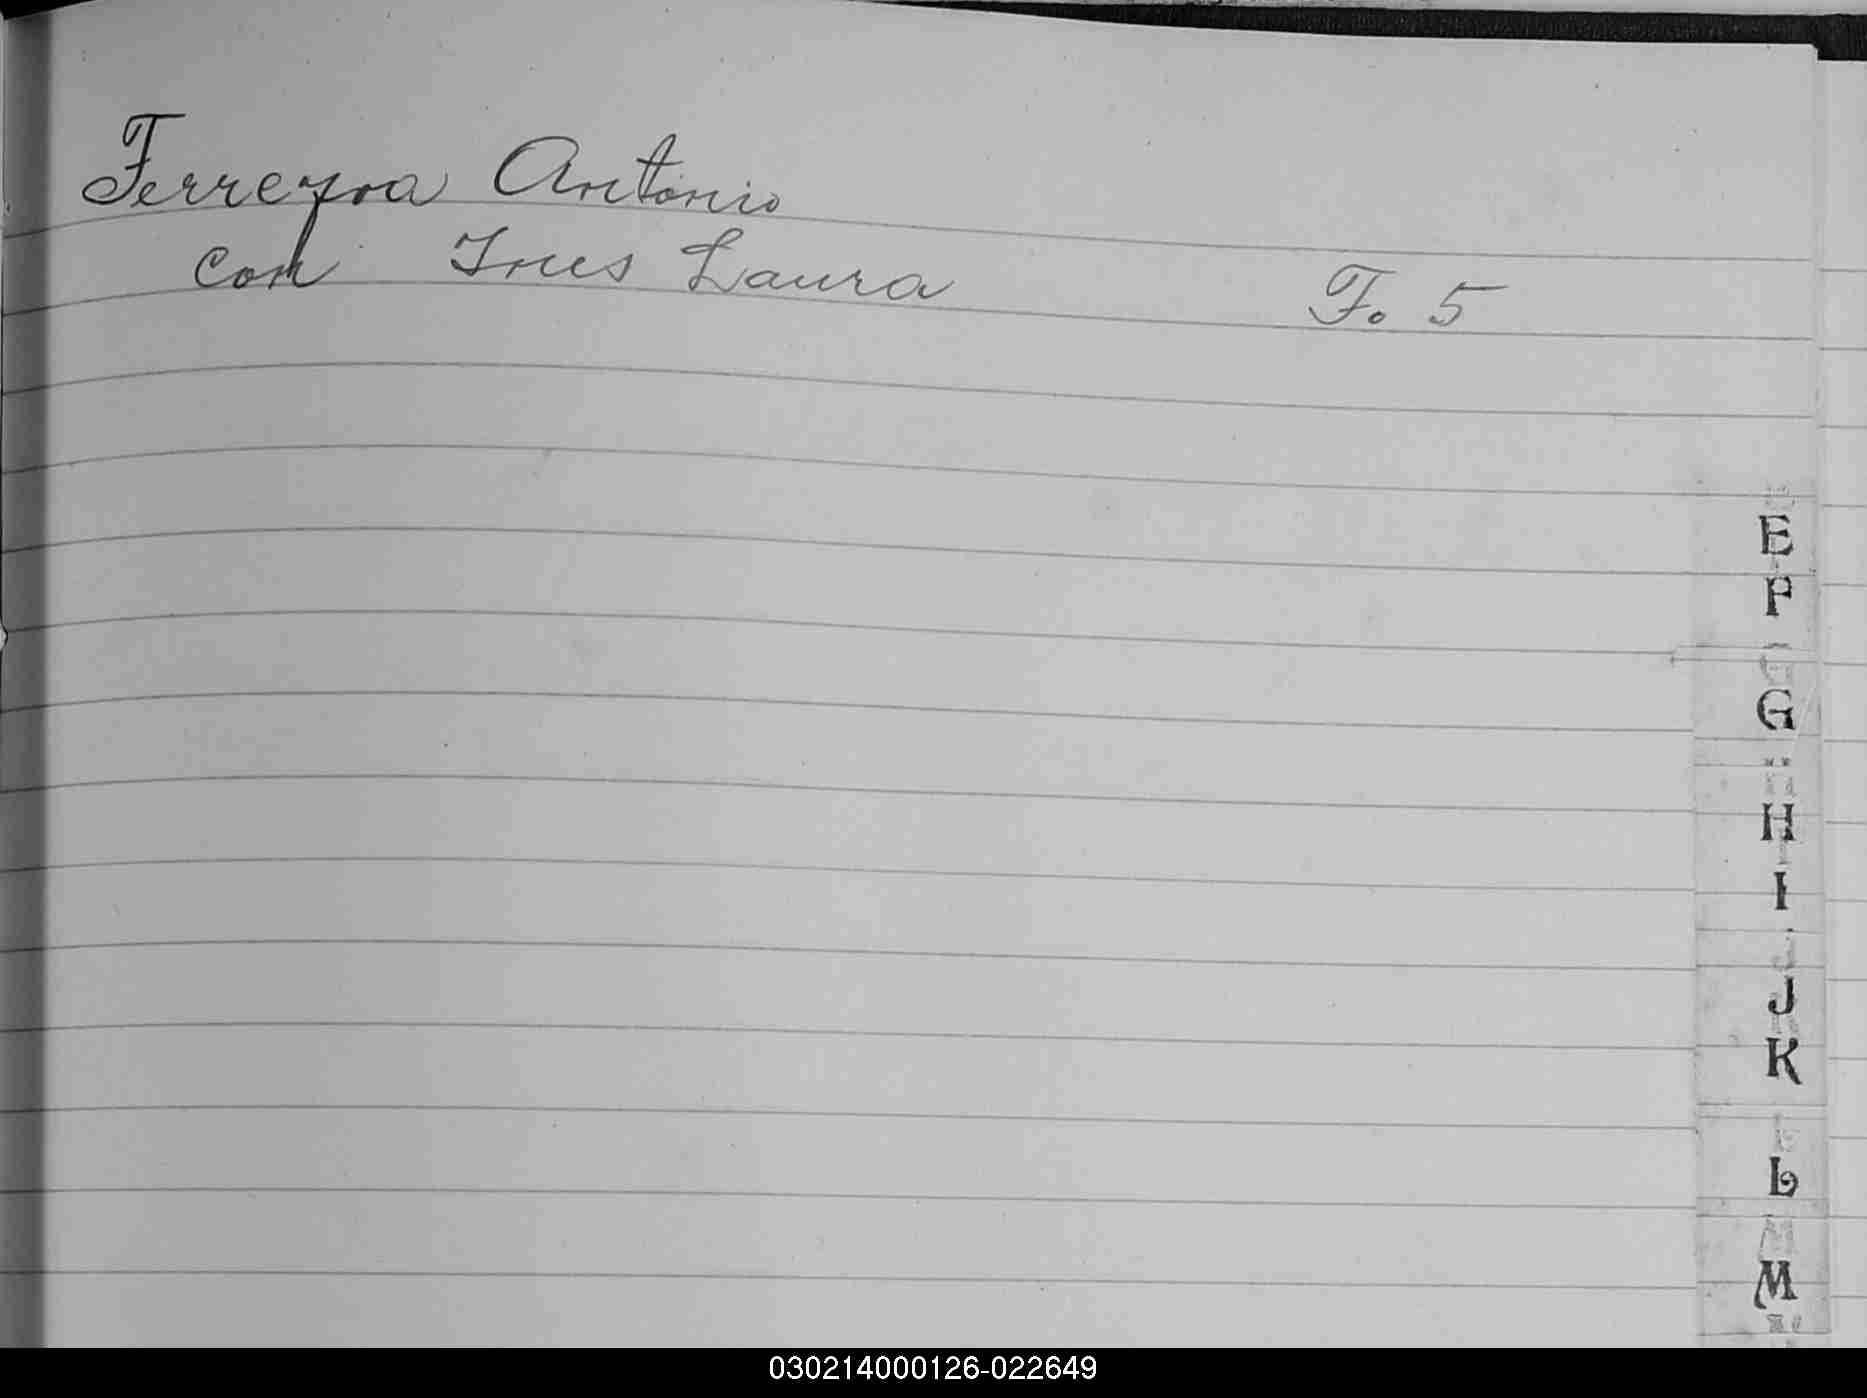 Ferreyra Antonio
con Ines Laura F. 5
E
F
G
H
I
J
K
L
M
030214000126-022649